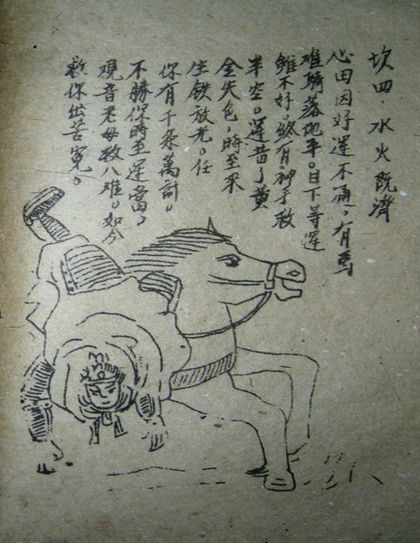 坎四.水火既濟
心田因好運不通,有馬
难騎落地平。日下等運
雖不好。終有神手
半空。運了黃
金失色,時至來
生铁放光。任
你有千条萬計。
不勝你時至運當,
觀音老母救八难。如今
你出苦寃。